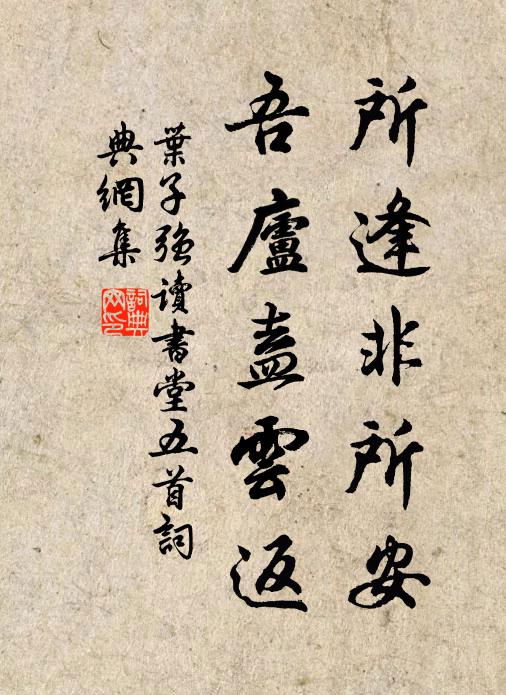 所逢非所安
吾廬盍雲返
葉子強讀書堂五首詞
典網集
詞典
网印